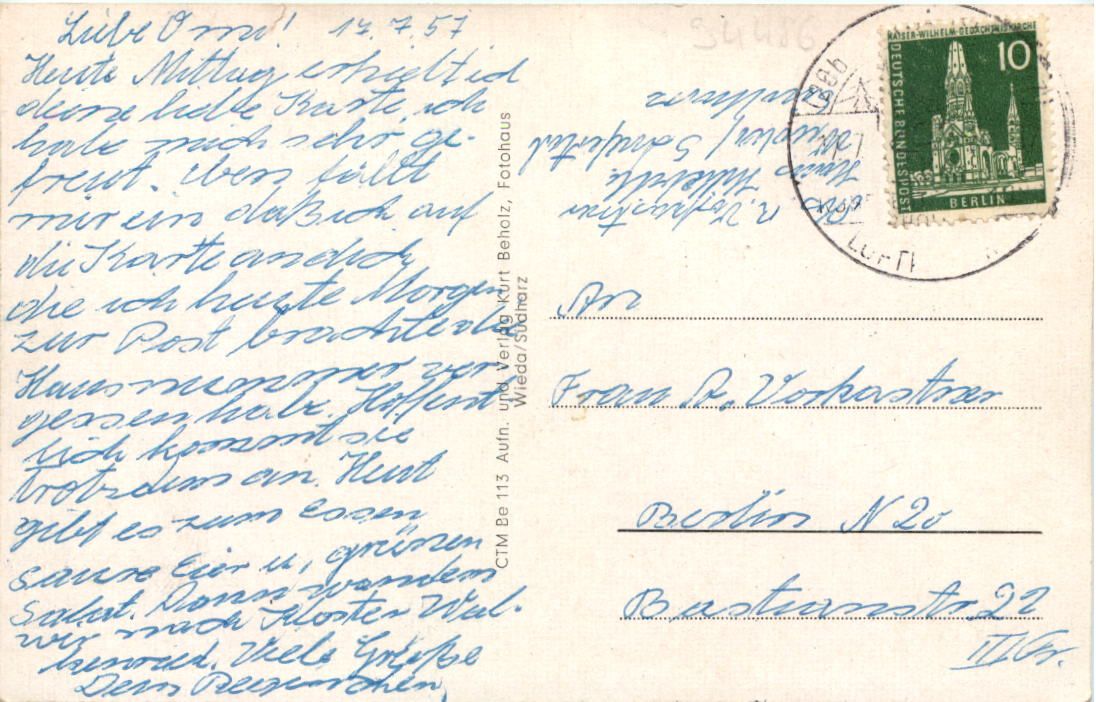 Liebe Omi! 17.7.57
Heute Mittag erhielt ich
deine liebe Karte, ich
habe mich sehr ge-
freut. Eben fällt
mir ein daß ich auf
die Karte an dich
die ich heute Morgen
zur Post brachte die
Hausnummer ver
gessen habe. Hoffent
lich kommt sie
trotzdem an. Heut
gibt es zum Essen
saure Eier u. grünen
Salat. Dann wandern
wir nach Kloster Wal-
kenried. Viele Grüße
Dein
CTM Be 113 Aufn. und Verlag Kurt Beholz, Fotohaus
Wieda/Südharz
94486
KAISER-WILHELM-GEDÄCHTNISKIRCHE
DEUTSCHE BUNDESPOST
10
BERLIN
An
Frau A. Vorkastner
Berlin N 20
Bastianstr. 22
III Tr.